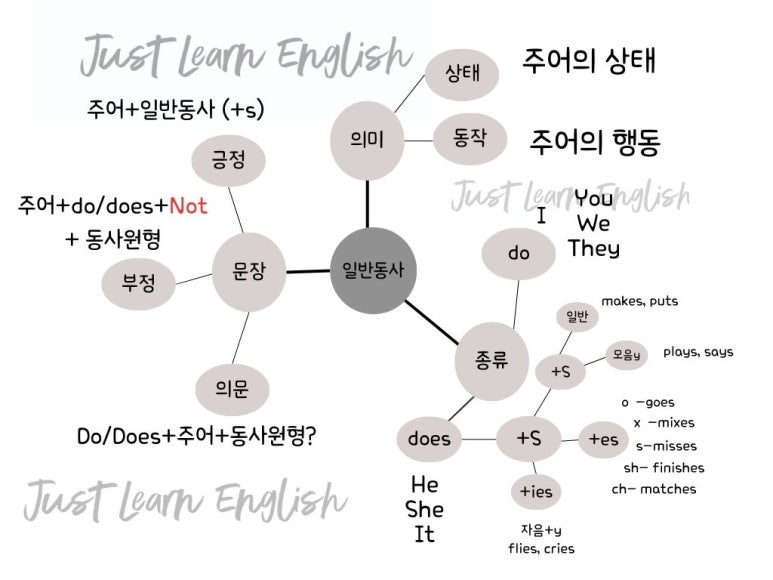 Just Learn English
상태
주어의 상태
주어+일반동사 (+s)
의미
동작
주어의 행동
긍정
Just Learn English
주어+do/does+Not
+ 동사원형
I
You
We
They
do
문장
일반동사
부정
일반
makes, puts
종류
+S
모음y
plays, says
의문
Do/Does+주어+동사원형?
does
+S
+es
o -goes
x -mixes
s-misses
sh- finishes
ch- matches
He
She
It
+ies
자음+y
flies, cries
Just Learn English